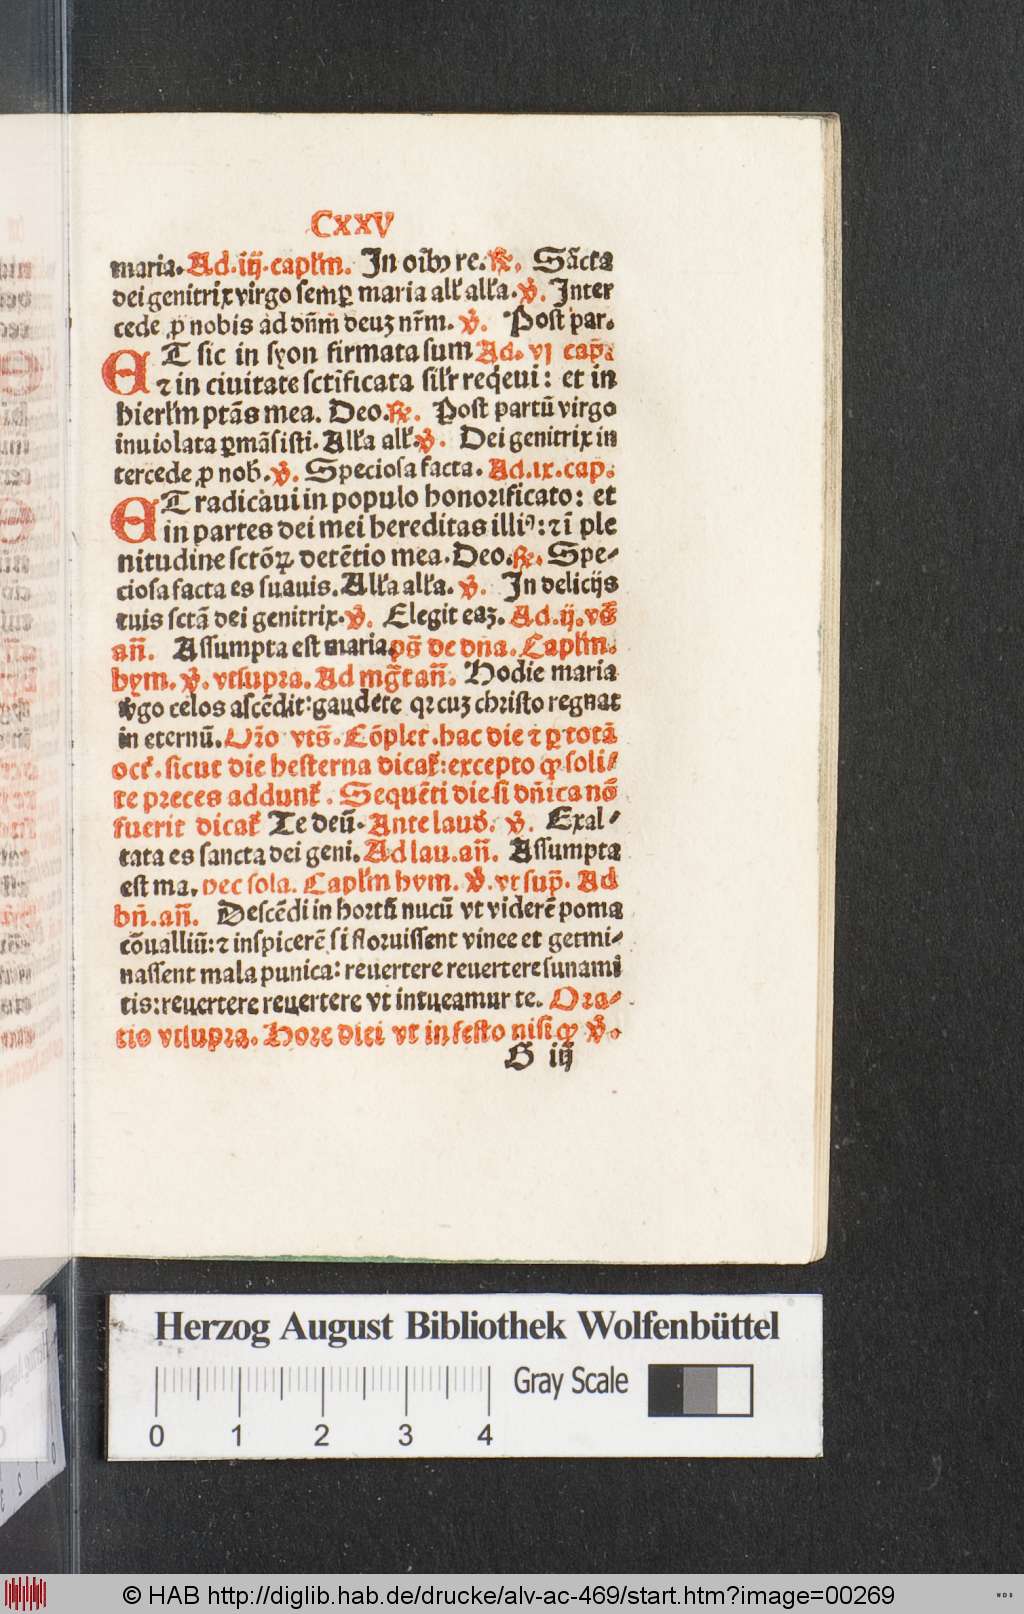 CxxV
maria. Ad.iij.caplm̄. In oīb9 re. ℟. Sācta
dei genitrix virgo semꝑ maria all' all'a. ℣. Inter
cede ꝓ nobis ad dn̄m deuʒ nr̄m. ℣. Post par.
ET sic in syon firmata sum Ad. vj cap̄.
⁊ in ciuitate sctīficata sil'r reqeui: et in
hierl'm ptās mea. Deo. ℟. Post partū virgo
inuiolata ꝑmāsisti. All'a all'. ℣. Dei genitrix in
tercede ꝓ nob̄. ℣. Speciosa facta. Ad.ix.cap.
ET radicaui in populo honorificato: et
in partes dei mei hereditas illi9: ⁊ī ple
nitudine sctōꝝ detētio mea. Deo. ℟. Spe-
ciosa facta es suauis. All'a all'a. ℣. In delicijs
tuis sctā dei genitrix. ℣. Elegit eaʒ. Ad.ij.vs̄
an̄. Assumpta est maria. ps̄ de dn̄a. Caplm̄.
hym. ℣. vtsupra. Ad mḡt an̄. Hodie maria
v̄go celos ascēdit: gaudete qr cuʒ christo regnat
in eternū. Or̄o vts̄. Cōplet. hac die ⁊ ꝑ totā
oct̄. sicut die hesterna dicat̄: excepto ꝙ soli-
te preces addunt̄. Sequēti die si dn̄ica nō
fuerit dicat̄ Te deū. Ante laud̄. ℣. Exal-
tata es sancta dei geni. Ad lau. an̄. Assumpta
est ma. nec sola. Caplm̄ hym. ℣. vt sup̄. Ad
bn̄. an̄. Descēdi in hortū nucū vt viderē poma
cōualliū: ⁊ inspicerē si floruissent vinee et germi-
nassent mala punica: reuertere reuertere sunami
tis: reuertere reuertere vt intueamur te. Ora-
tio vtsupra. Hore dici vt in festo nisi ꝙ ℣.
G iij
Herzog August Bibliothek Wolfenbüttel
0 1 2 3 4 Gray Scale
© HAB http://diglib.hab.de/drucke/alv-ac-469/start.htm?image=00269